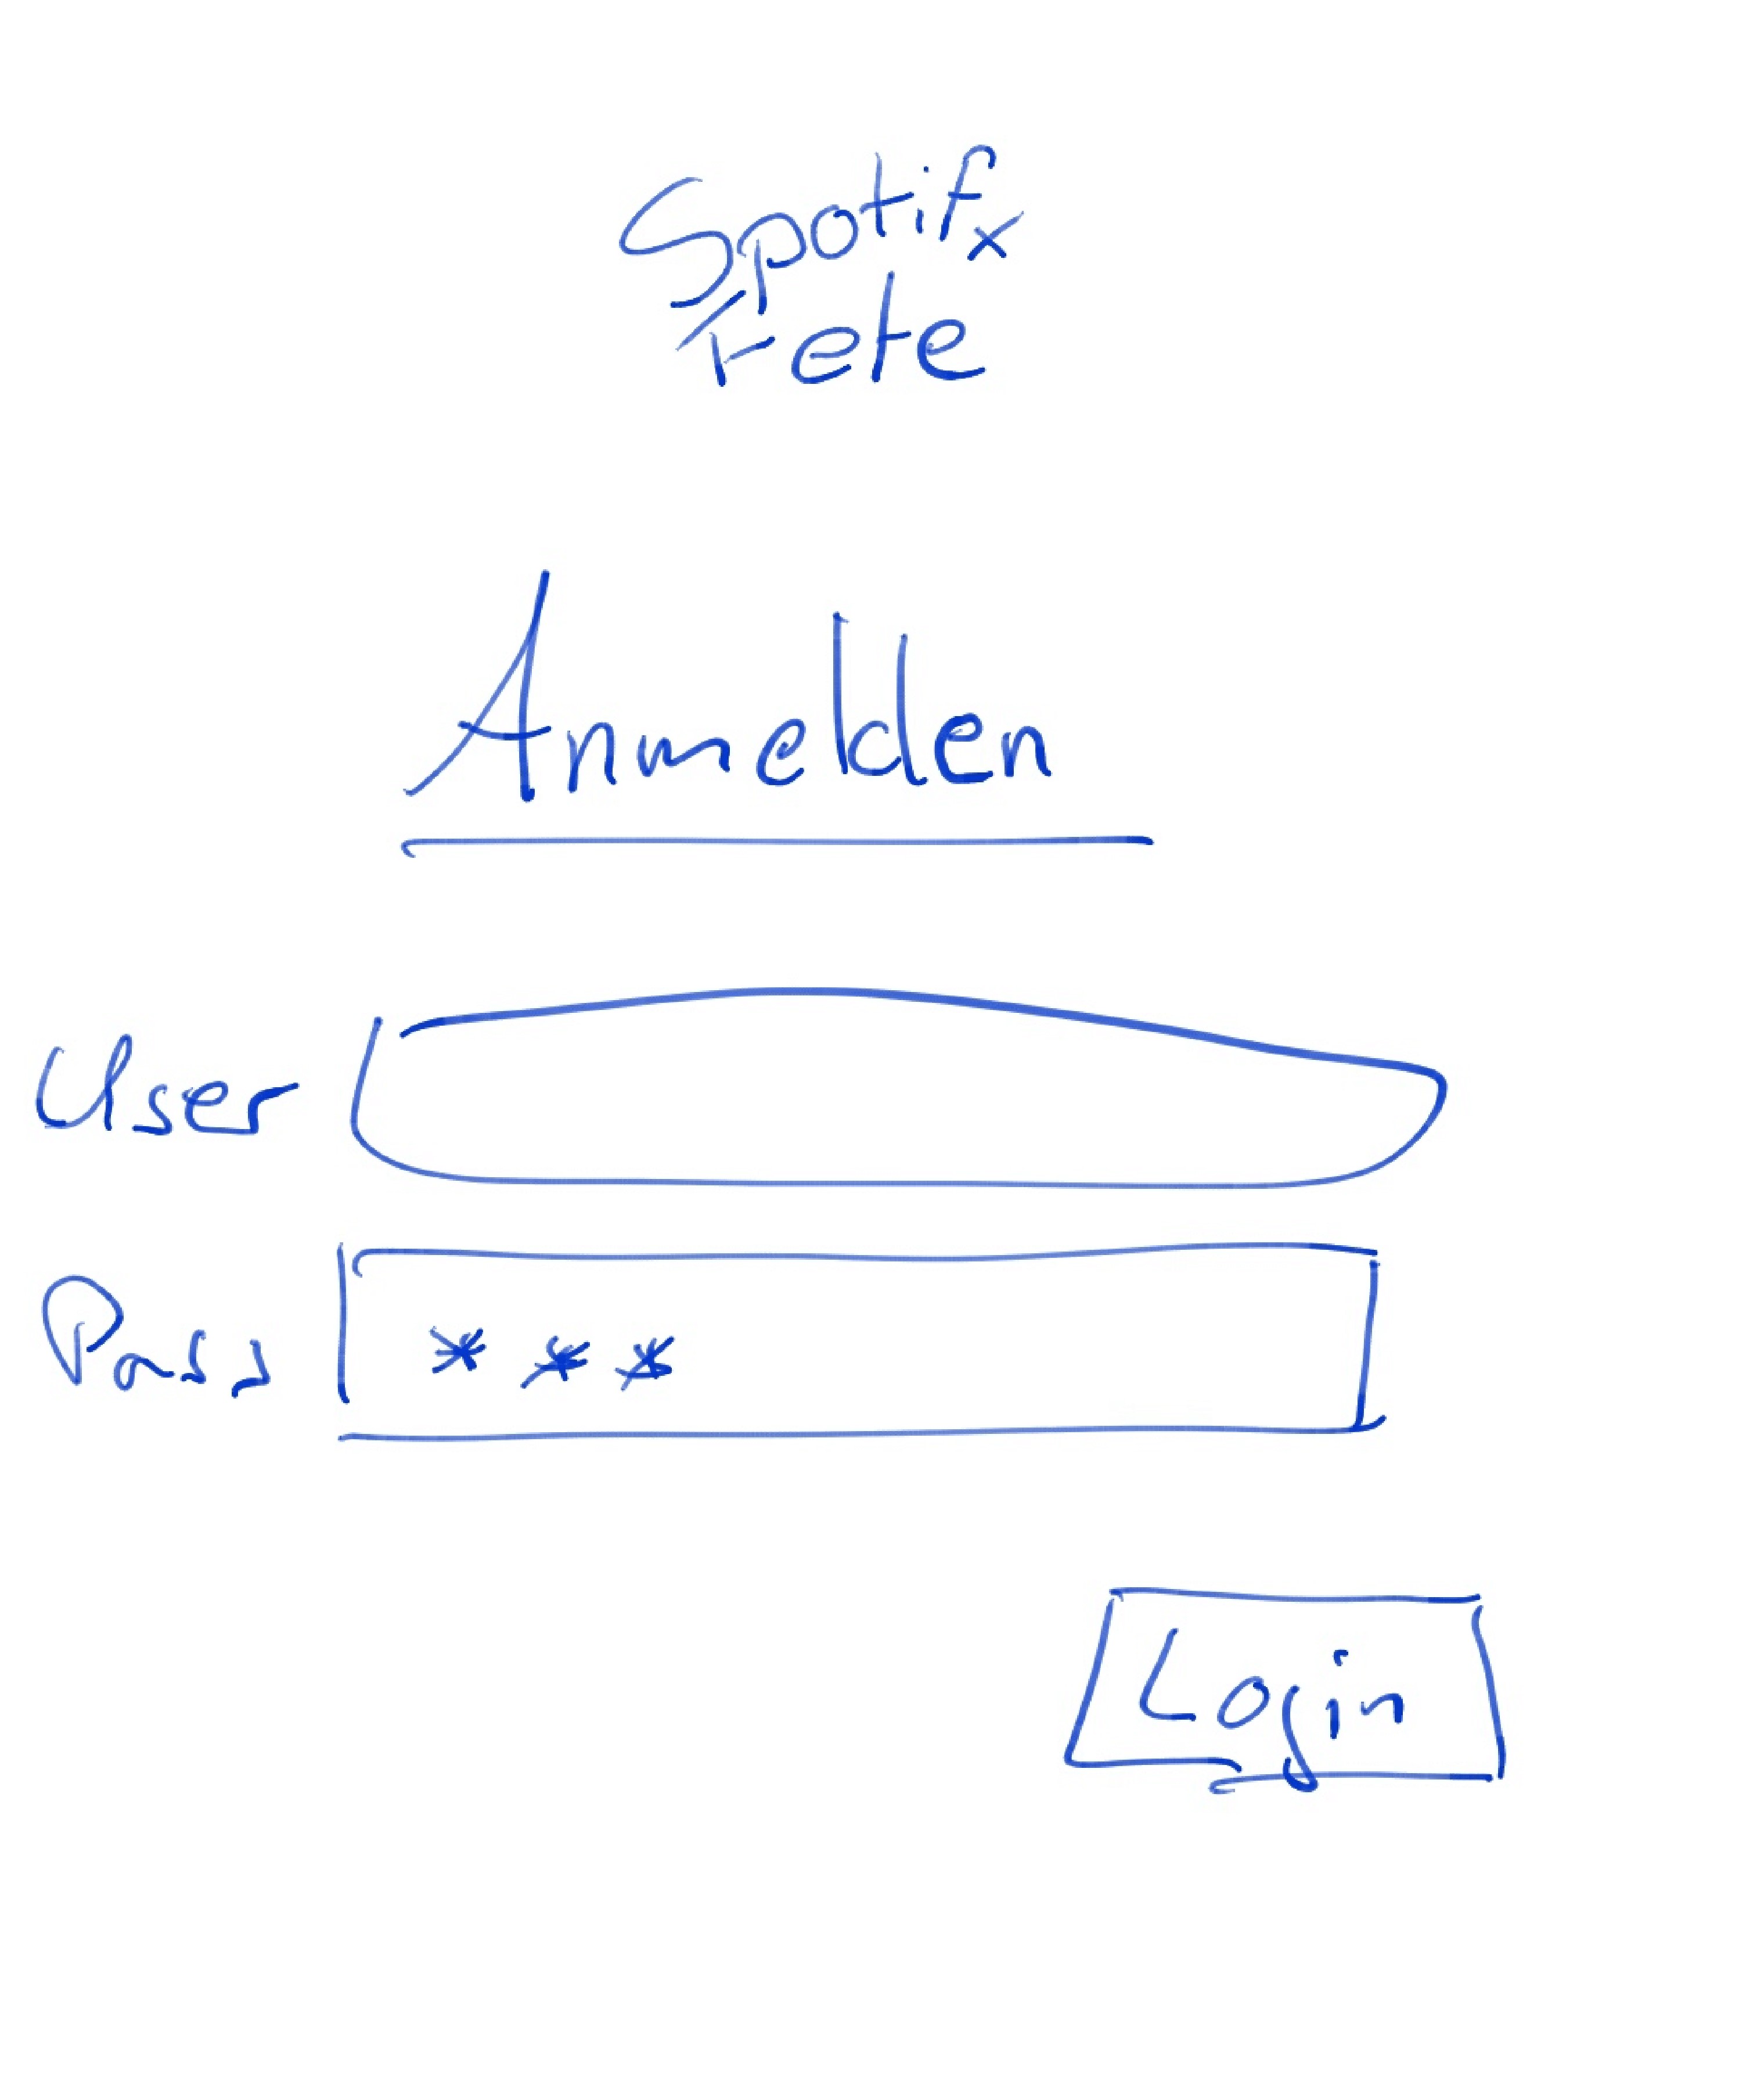 Spotify
Fete
Anmelden
User
Pass ***
Login